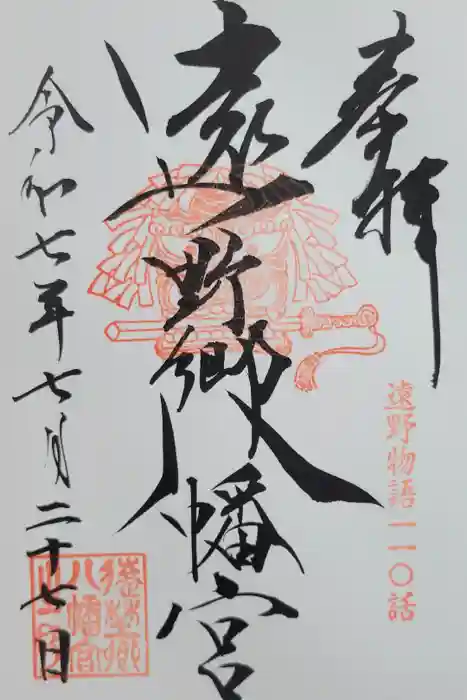 奉拝
遠野物語一一〇話
遠野郷八幡宮
令和七年七月二十七日